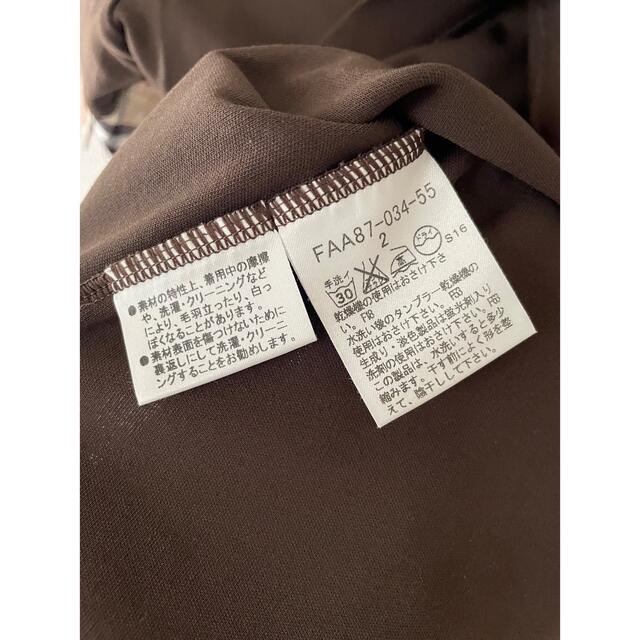 ●素材の特性上、着用中の摩擦
や、洗濯・クリーニングなど
により、毛羽立ったり、白っ
ぽくなることがあります。
●素材表面を傷つけないために
裏返しにして洗濯・クリーニ
ングすることをお勧めします。
FAA87-034-55
2
手洗イ
30
高
ドライ
S16
乾燥機の使用はおさけ下さ
い。FB
水洗い後のタンブラー乾燥機の
使用はおさけ下さい。FD
生成り・淡色製品は蛍光剤入り
洗剤の使用はおさけ下さい。FG
この製品は、水洗いすると多少
縮みます。干す前によく形を整
えて、陰干しして下さい。